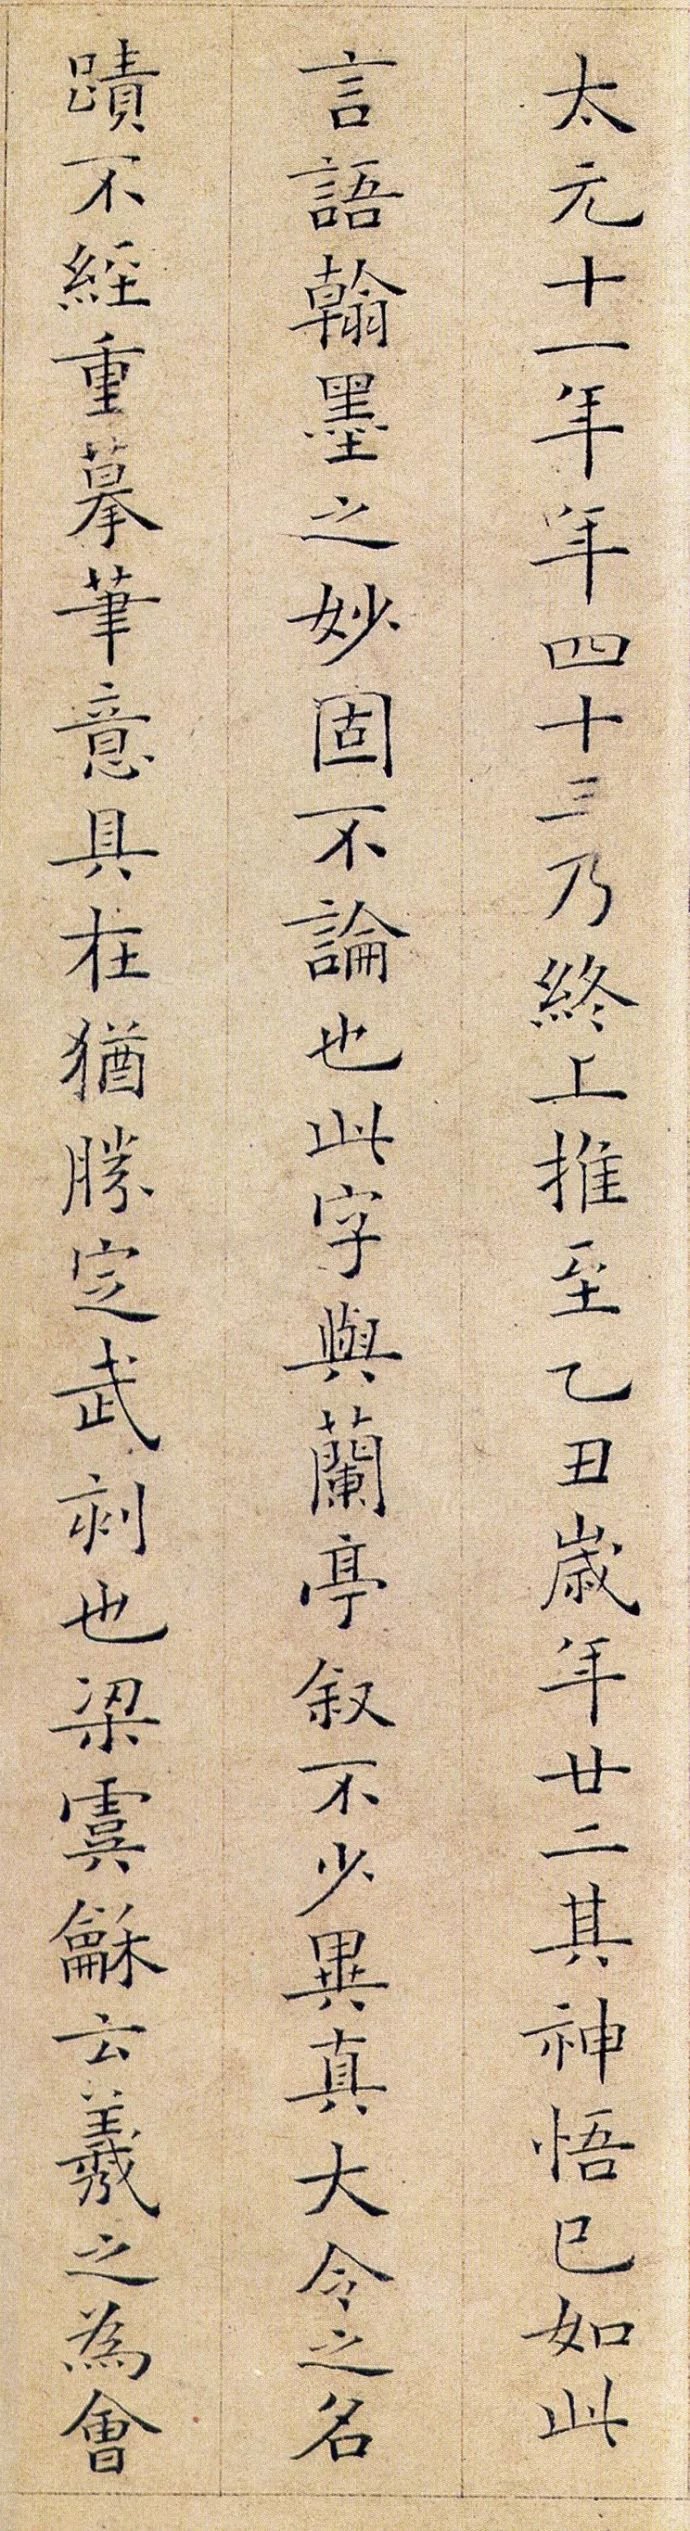 太元十一年年四十三乃終上推至乙丑歲年廿二其神悟已如此
言語翰墨之妙固不論也此字與蘭亭叙不少異真大令之名
蹟不經重摹筆意具在猶勝定武刻也梁虞龢云羲之為會